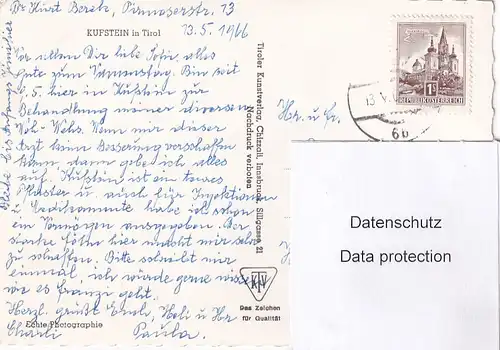 Kurt Berck, Pirmaserstr. 13
KUFSTEIN in Tirol
13.5.1966
Vor allem Dir liebe Sofie, alles
Gute zum Namenstag. Bin seit
5. hier in Kufstein zur
Behandlung meiner diversen
Weh-Wehs. Wenn mir dieser
Arzt keine Besserung verschaffen
kann dann gebe ich alles
auf. Kufstein ist ein teures
Pflaster u. auch für Injektionen
u. Medikamente habe ich schon
ein Vermögen ausgegeben. Der
starke Föhn hier macht mir sehr
zu schaffen. Bitte schreibt mir
einmal, ich würde gerne wissen
wie es Franzi geht.
Herzl. grüßt Euch, u Hr
Charli Paula.
Echte Photographie
Bleibe bis Anfangs
Tiroler Kunstverlag, Chizzali, Innsbruck, Sillgasse 21
Nachdruck verboten
Das Zeichen
für Qualität
1S
REPUBLIK ÖSTERREICH
13. V.
6b
Hr. u. Fr.
Datenschutz
Data protection